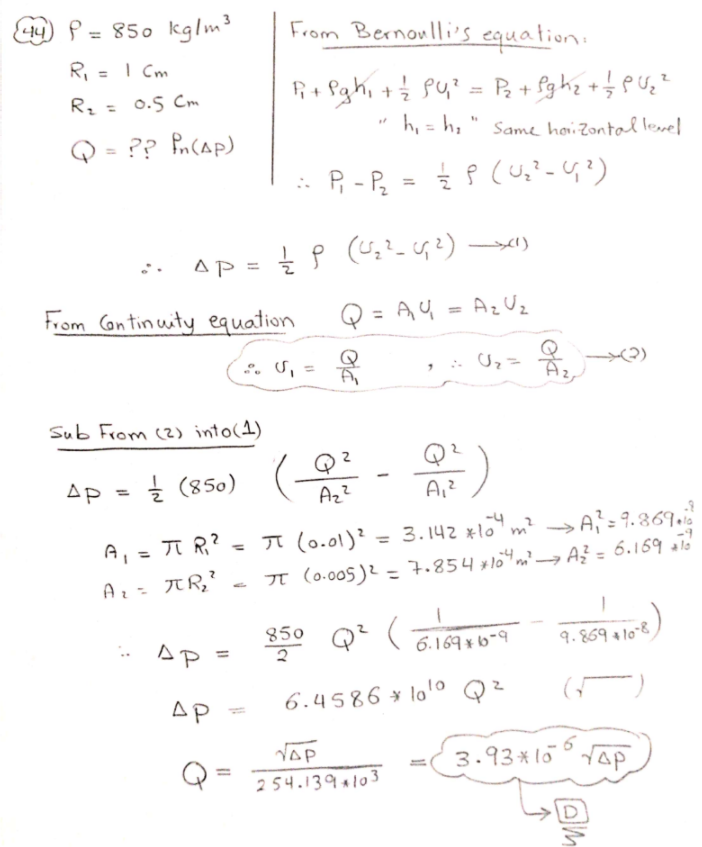 44 ρ = 850 kg/m³
R₁ = 1 Cm
R₂ = 0.5 Cm
Q = ?? Fn(Δp)
From Bernoulli's equation:
P₁ + ρgh₁ + ½ ρU₁² = P₂ + ρgh₂ + ½ ρU₂²
" h₁ = h₂ " Same horizontal level
∴ P₁ - P₂ = ½ ρ (U₂² - U₁²)
∴ Δp = ½ ρ (U₂² - U₁²) → (1)
From Continuity equation Q = A₁U₁ = A₂U₂
∴ U₁ = Q/A₁ , ∴ U₂ = Q/A₂ → (2)
Sub From (2) into (1)
Δp = ½ (850) (Q²/A₂² - Q²/A₁²)
A₁ = π R₁² = π (0.01)² = 3.142 *10⁻⁴ m² → A₁² = 9.869 *10⁻⁸
A₂ = πR₂² = π (0.005)² = 7.854 *10⁻⁴ m² → A₂² = 6.169 *10⁻⁹
∴ Δp = 850/2 Q² (1/6.169*10⁻⁹ - 1/9.869*10⁻⁸)
Δp = 6.4586 * 10¹⁰ Q² (√ )
Q = √Δp / 254.139*10³ = 3.93*10⁻⁶ √Δp
D